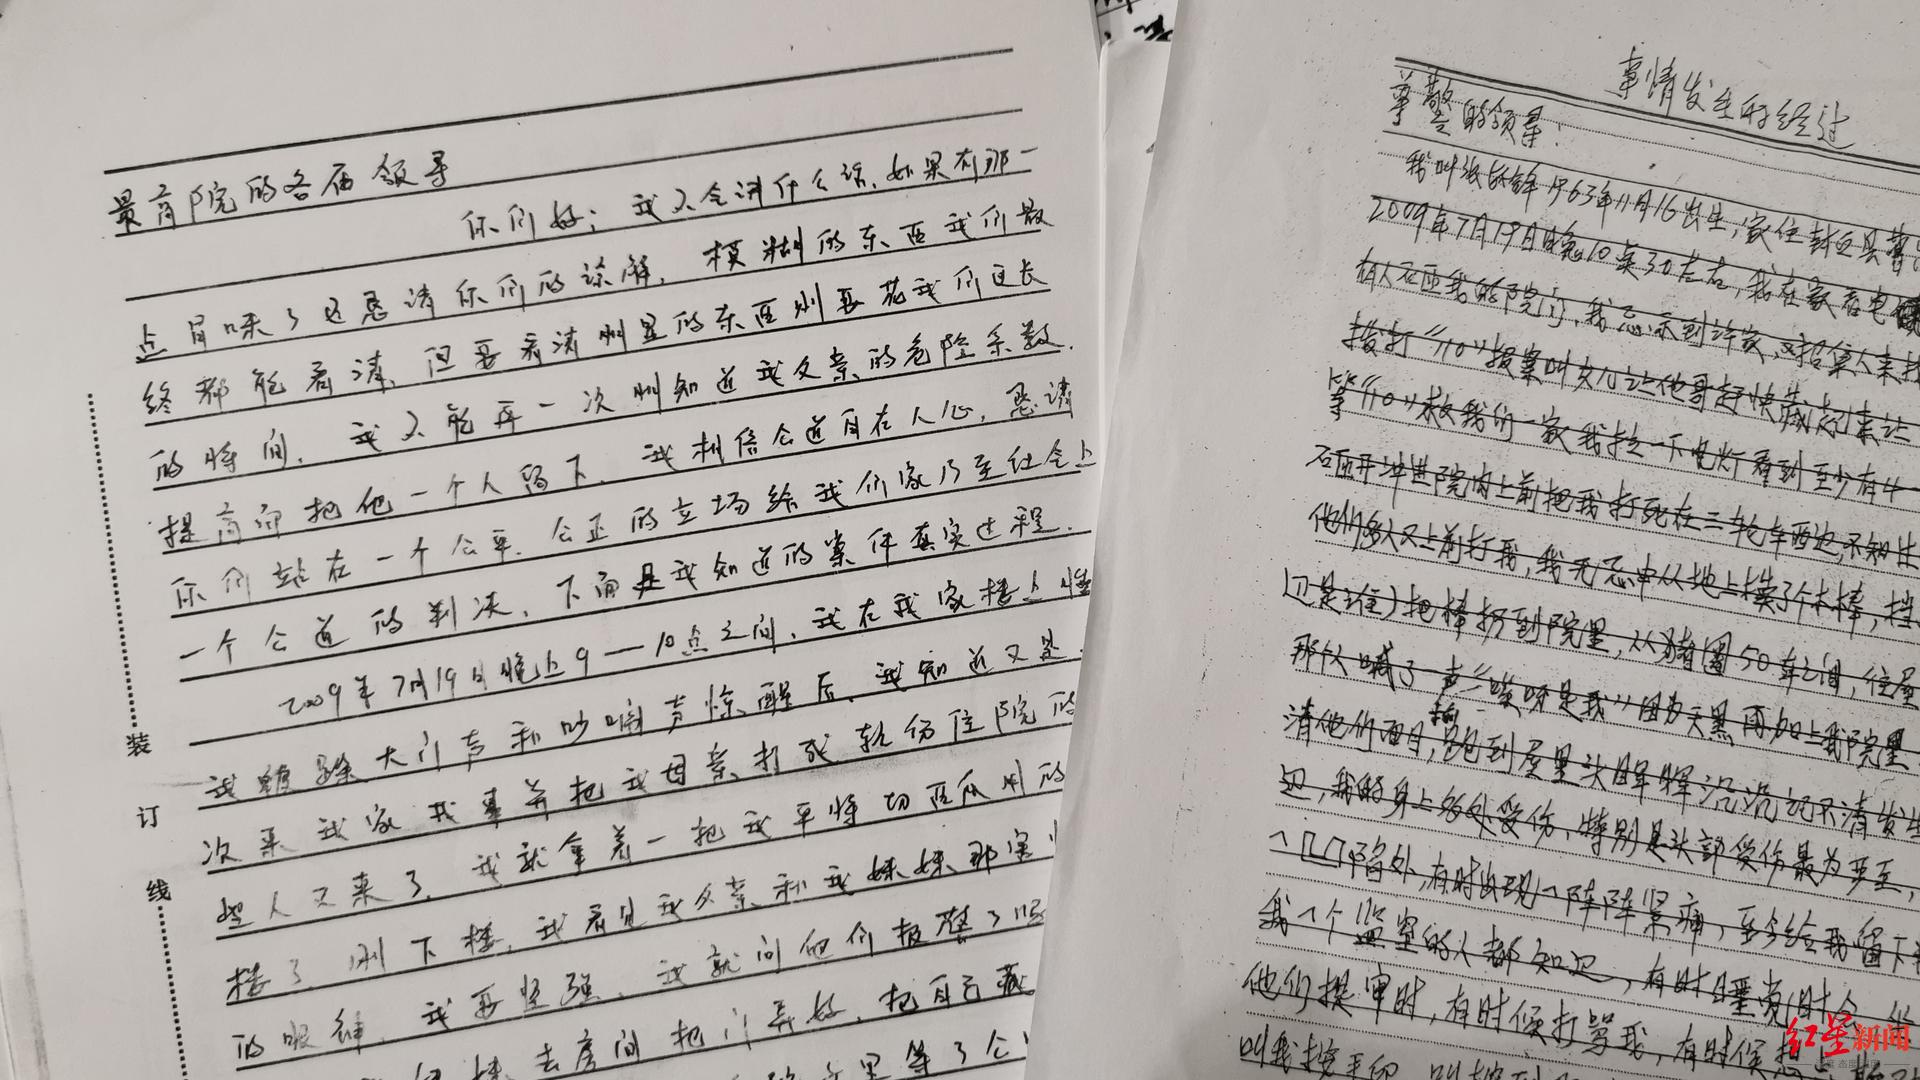 最高院的各届领导
你们好：我不会讲什么话，如果有那一
点冒昧了还恳请你们的谅解，模糊的东西我们最
终都能看清，但要看清明显的东西则要花我们过长
的时间，我不能再一次明知道我父亲的危险系数
提高而把他一个人留下，我相信公道自在人心，恳请
你们站在一个公平、公正的立场给我们家乃至社会上
一个公道的判决，下面是我知道的案件真实过程.
2009年7月19日晚上9—10点之间，我在我家楼上睡
我被踹大门声和吵闹声惊醒后，我知道又是
次来我家我事并把我母亲打成轻伤住院的
些人又来了，我就拿着一把我平时切西瓜用的
楼了，刚下楼，我看见我父亲和我妹妹那
的眼神，我要坚强，我就问他们报警了
楼去房间把门弄好，把自己藏
里等了
装
订
线
事情发生的经过
尊敬的领导：
我叫张好锋1963年11月16出生，家住封丘县
2009年7月19日晚10点30左右，我在家看电
有人石西我的院门，我忘示到许家，又招拿人来找
拨打“110”报案叫女儿让他哥赶快藏起来让
等“110”救我们一家我拉一下电灯看到至少有4
石西开冲进院内上前把我打死在三轮车西边，不知
他们多人又上前打我，我无忘中从地上摸了个木棒，
是谁）把棒扔到院里，从猪圈50年之间，住屋
那个人喊了一声“哎呀是我”因为天黑再加上我院里
清他们面目，跑到屋里头晕晕沉沉记不清发生
边，我的身上多处受伤，特别是头部受伤最为严重，
陷处，有时出现一阵阵紧痛，至今给我留下
我一个监室的人都知道，有时睡觉时
他们提审时，有时候打骂我，有时候
叫我按手印
红星新闻